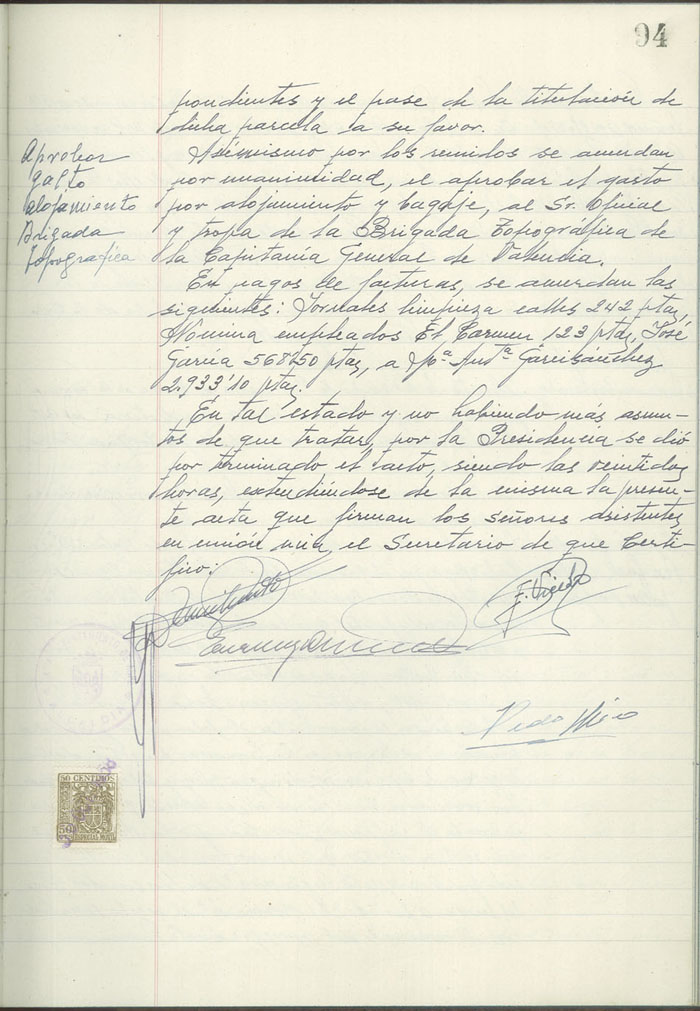 94
pondientes y el pase de la titulación de
dicha parcela a su favor.
Aprobar
gasto
alojamiento
Brigada
Topográfica
Asímismo por los reunidos se acuerdan
por unanimidad, el aprobar el gasto
por alojamiento y bagaje, al Sr. Oficial
y tropa de la Brigada Topográfica de
la Capitanía General de Valencia.
En pagos de facturas, se acuerdan las
siguientes: Jornales limpieza calles 242 ptas,
Nómina empleados El Carmen 123 ptas, José
García 568'50 ptas, a Mª Antª Garcisanchez
2.933'10 ptas.
En tal estado y no habiendo más asun-
tos de que tratar, por la Presidencia se dió
por terminado el acto, siendo las veintidos
horas, extendiéndose de la misma la presen-
te acta que firman los señores asistentes,
en unión mia, el Secretario de que Certi-
fico:
F. Vicedo
Pedro Miró
50 CENTIMOS
50
ESPECIAL MOVIL